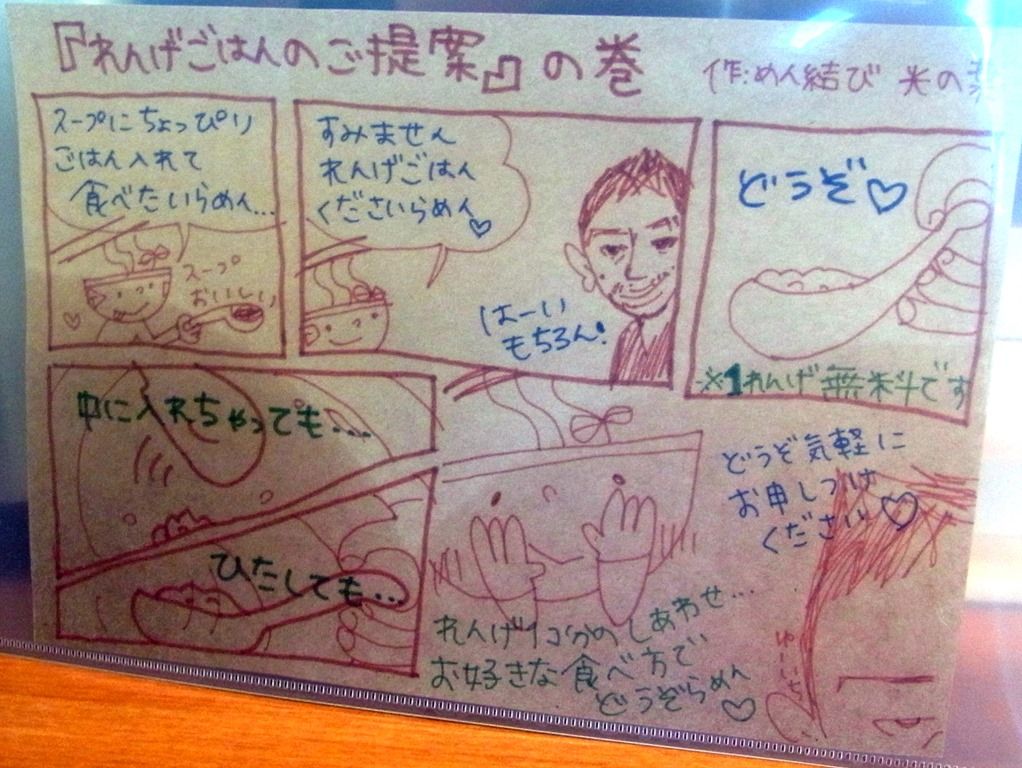 『れんげごはんのご提案』の巻
作:めん結び 光の
スープにちょっぴり
ごはん入れて
食べたいらめん…
スープ
おいしい
すみません
れんげごはん
くださいらめん♡
はーい
もちろん!
どうぞ♡
※1れんげ無料です
中に入れちゃっても…
ひたしても…
れんげ1コ分のしあわせ…
お好きな食べ方で
どうぞらめん♡
どうぞ気軽に
お申しつけ
ください♡